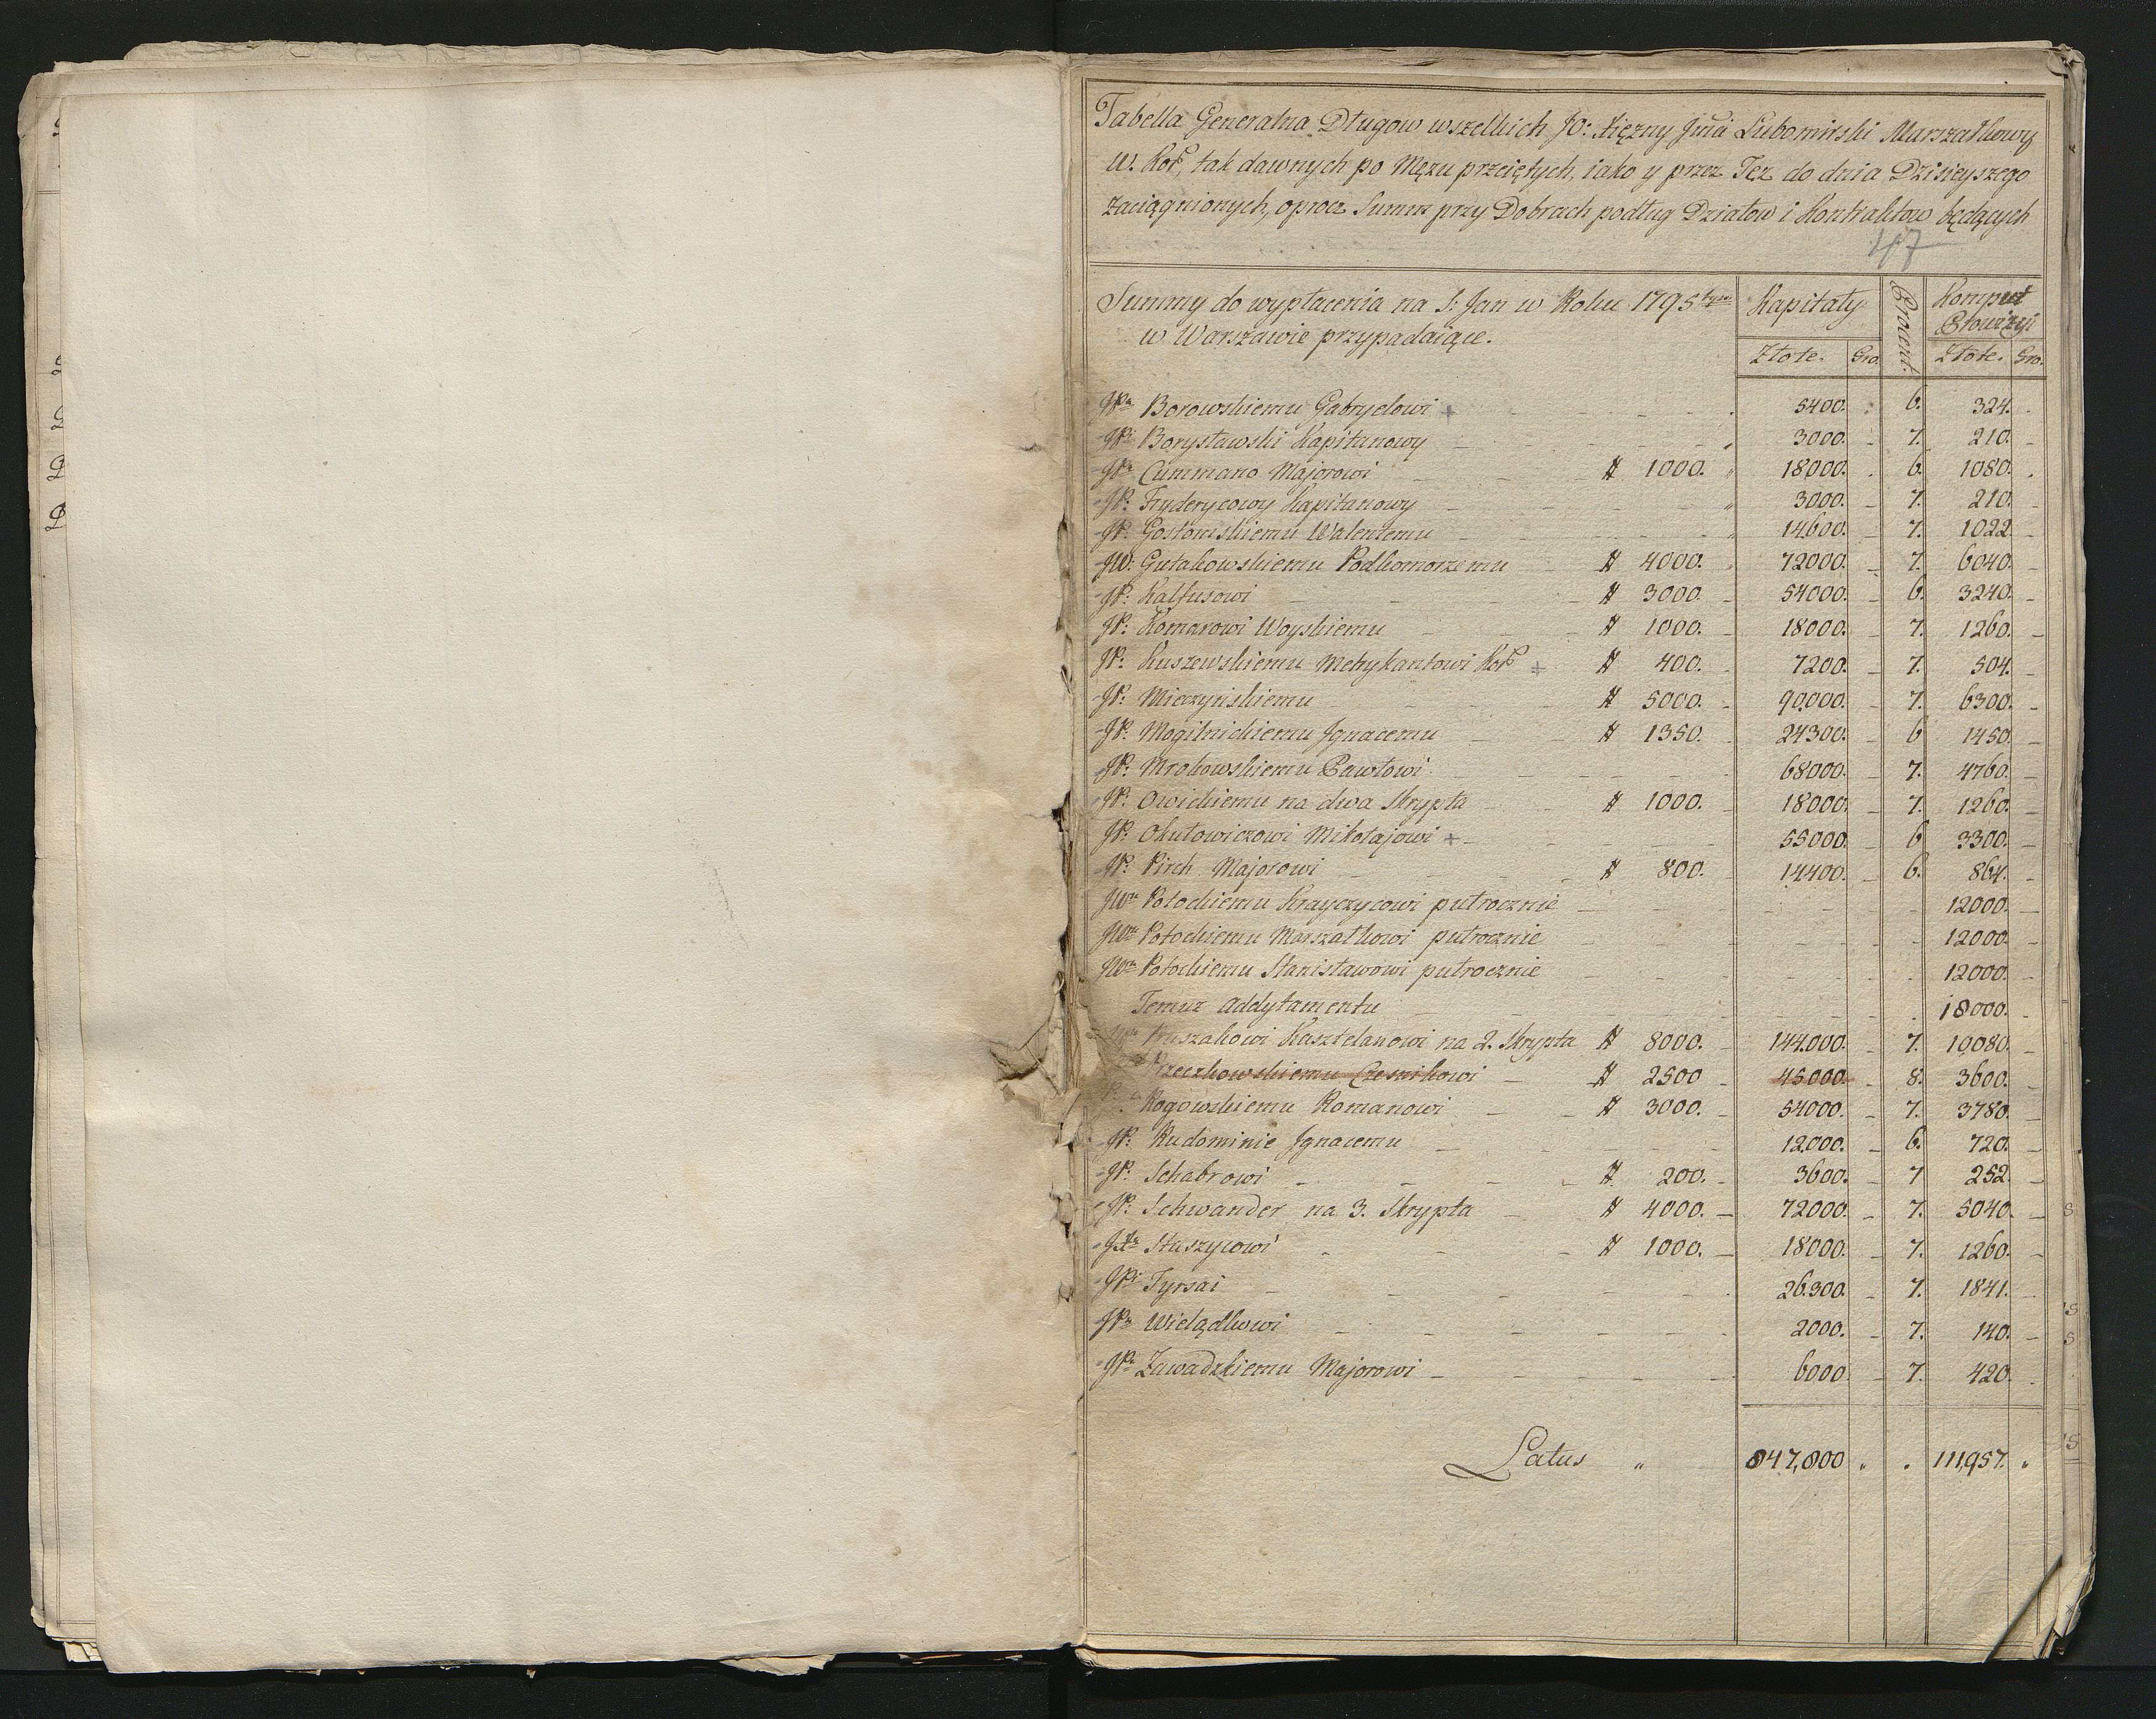 Tabella Generalna Długow wszelkich JO: Xiężny Jmci Lubomirski Marszałkowy
W. Kor. tak dawnych po Mężu przyiętych, iako y przez Tęż do dnia Dzisieyszego
zaciągnionych, oprocz Summ przy Dobrach podług Działow i Kontraktow będących
Summy do wypłacenia na S: Jan w Roku 1795tym Kapitały Procent. Komput Prowizyi
w Warszawie przypadaiące. Złote. Gro. Złote. Gro.
JPu Borowskiemu Gabryelowi + 5400. 6. 324.
JPi Borysławski Kapitanowy 3000. 7. 210.
JPu Cummano Majorowi # 1000. 18000. 6. 1080.
JP: Fryderycowy Kapitanowy 3000. 7. 210.
JP: Gostomskiemu Walentemu 14600. 7. 1022.
JW: Gutakowskiemu Podkomorzemu # 4000. 72000. 7. 6040.
JP: Kalfusowi # 3000. 54000. 6. 3240.
JP: Komarowi Woyskiemu # 1000. 18000. 7. 1260.
JP: Kuszewskiemu Metrykantowi Kor + # 400. 7200. 7. 504.
JP: Mieczyńskiemu # 5000. 90000. 7. 6300.
JP: Mogilnickiemu Jgnacemu # 1350. 24300. 6 1450.
JP: Mrokowskiemu Pawłowi 68000. 7. 4760.
JP: Owickiemu na dwa Skrypta # 1000. 18000. 7. 1260.
JP: Okułowiczowi Mikołajowi + 55000. 6 3300.
JP: Pirch Majorowi # 800. 14400. 6. 864.
JWu Potockiemu Krayczycowi putrocznie 12000.
JWu Potockiemu Marszałkowi putrocznie 12000.
JWu Potockiemu Stanisławowi putrocznie 12000.
Temuż Addytamentu 18000.
Pruszakowi Kasztelanowi na 2. Skrypta # 8000. 144000. 7. 10080.
Rzeczkowskiemu Czesnikowi # 2500 45000. 8. 3600.
Rogowskiemu Romanowi # 3000. 54000. 7. 3780.
JP: Rudominie Jgnacemu 12000. 6. 720.
JP: Schabrowi # 200. 3600. 7 252.
JP: Schwander na 3. Skrypta # 4000. 72000. 7. 5040.
JXu Staszycowi # 1000. 18000. 7. 1260.
JPi Tyrsai 26300. 7. 1841.
JPu Wielądkowi 2000. 7. 140.
JPu Zawadzkiemu Majorowi 6000 7. 420.
Latus 847,800 111,957.